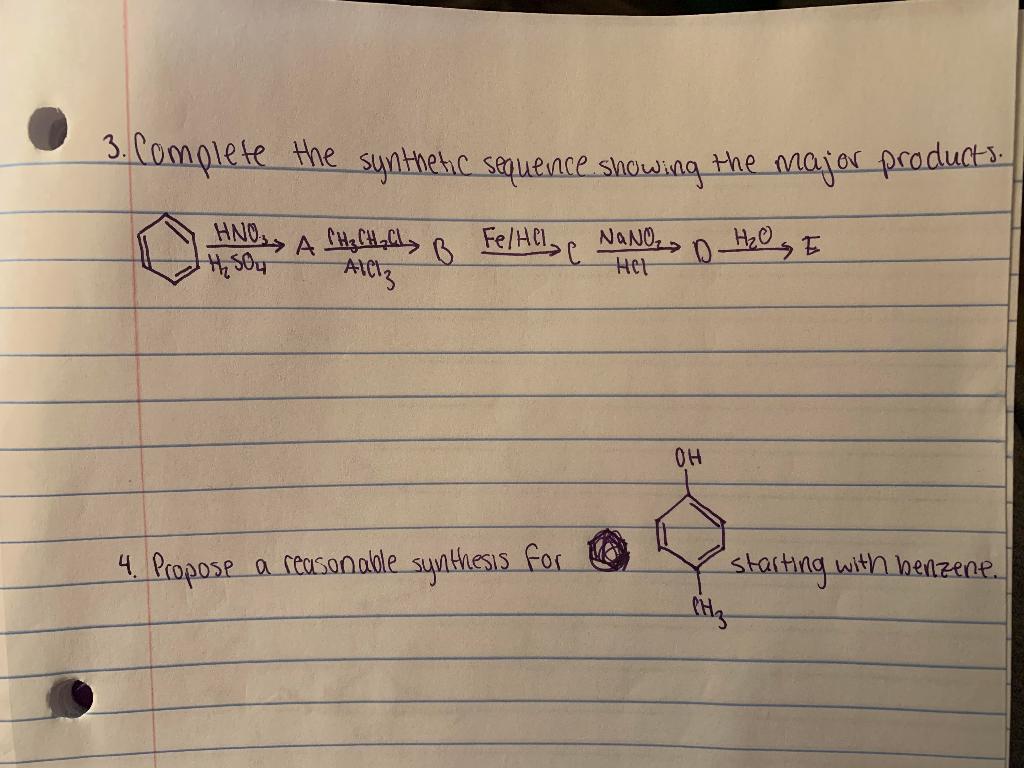 3. Complete the synthetic sequence showing the major products.
HNO₃ H₂SO₄ A CH₃CH₂Cl AlCl₃ B Fe/HCl C NaNO₂ HCl D H₂O E
OH
4. Propose a reasonable synthesis for starting with benzene.
CH₃